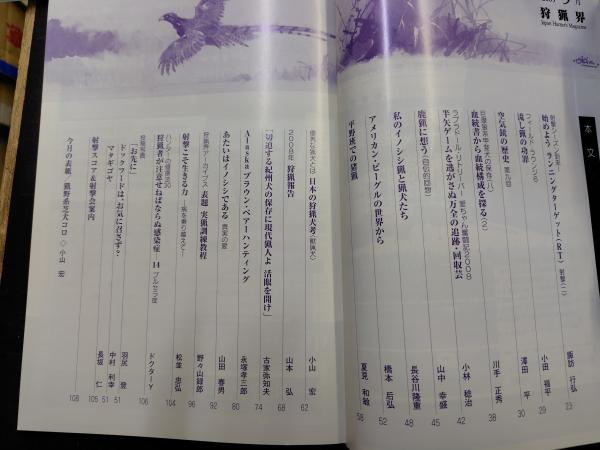 狩猟界
Japan Hunter's Magazine
本文
射撃シーズン到来
始めようランニングターゲット(RT) 射撃(二) 諏訪 行弘 23
小田 福平 29
フィールドラウンジ6
流し猟の功罪 澤田 平 30
空気銃の歴史 第九回
血統書から血統構成を探る(2) 川手 正秀 38
ラブラドール・リトリーバー 愛ちゃん奮闘記2008
半矢ゲームを逃がさぬ万全の追跡・回収芸 小林 稔治 42
鹿猟に想う(自伝的回想) 山中 幸盛 45
私のイノシシ猟と猟犬たち 長谷川隆重 48
アメリカン・ビーグルの世界から 橋本 后弘 52
平野猟での猪猟 夏見 和敏 58
優秀な猟犬とは 日本の狩猟犬考(獣猟犬) 小山 宏 62
2008年 狩猟報告 山本 弘 68
「切迫する紀州犬の保存に現代猟人よ 活眼を開け」 古家弥知夫 74
Alaska ブラウン・ベアーハンティング 永塚孝三郎 80
あたいはイノシシである 真実の愛 山田 春男 92
狩猟界アーカイブス 表題 実猟訓練教程 野々山録郎 96
射撃こそ生きる力 ―病を乗り越えて― 松並 忠弘 104
ハンターの健康法30
狩猟者が注意せねばならぬ感染症―14 ブルセラ症 ドクターY 106
投稿写真
「お先に」 羽尻 登 51
ドックフードは、お気に召さず? 中村 利幸 51
マタギゴヤ 長坂 仁 61
射撃スコア&射撃会案内 105
今月の表紙／猟野系芝犬コロ ◇小山 宏 108